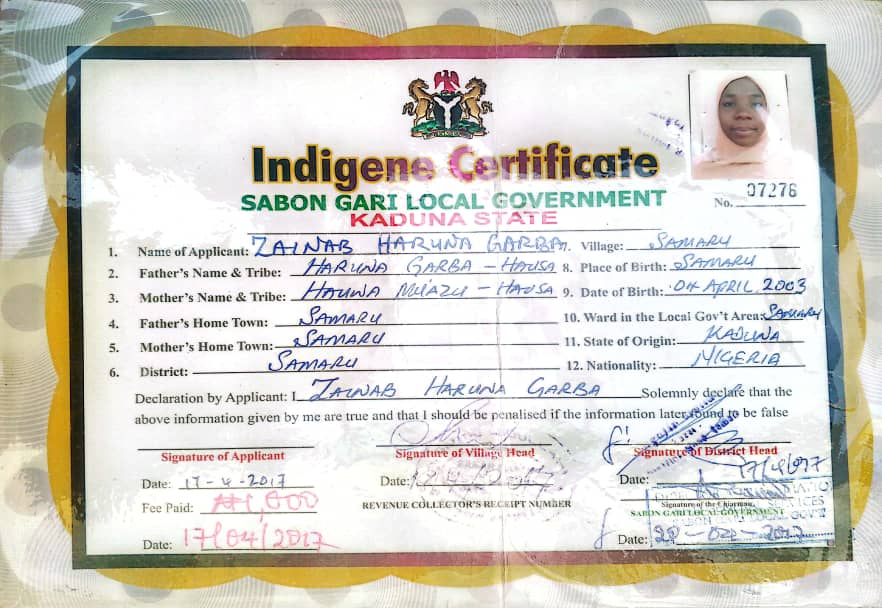 Indigene Certificate
SABON GARI LOCAL GOVERNMENT
KADUNA STATE
No. 07276
1. Name of Applicant: ZAINAB HARUNA GARBA
7. Village: SAMARU
2. Father's Name & Tribe: HARUNA GARBA - HAUSA
8. Place of Birth: SAMARU
3. Mother's Name & Tribe: HAUWA MU'AZU - HAUSA
9. Date of Birth: 04 APRIL 2003
4. Father's Home Town: SAMARU
10. Ward in the Local Gov't Area: SAMARU
5. Mother's Home Town: SAMARU
11. State of Origin: KADUNA
6. District: SAMARU
12. Nationality: NIGERIA
Declaration by Applicant: I ZAINAB HARUNA GARBA Solemnly declare that the
above information given by me are true and that I should be penalised if the information later found to be false
Signature of Applicant
Signature of Village Head
Signature of District Head
Date: 17-4-2017
Date:
Date: 17/4/
Fee Paid: ₦1,000
REVENUE COLLECTOR'S RECEIPT NUMBER
Signature of the Chairman
SABON GARI LOCAL GOVERNMENT
Date: 17/04/2017
Date: 20-04-2017